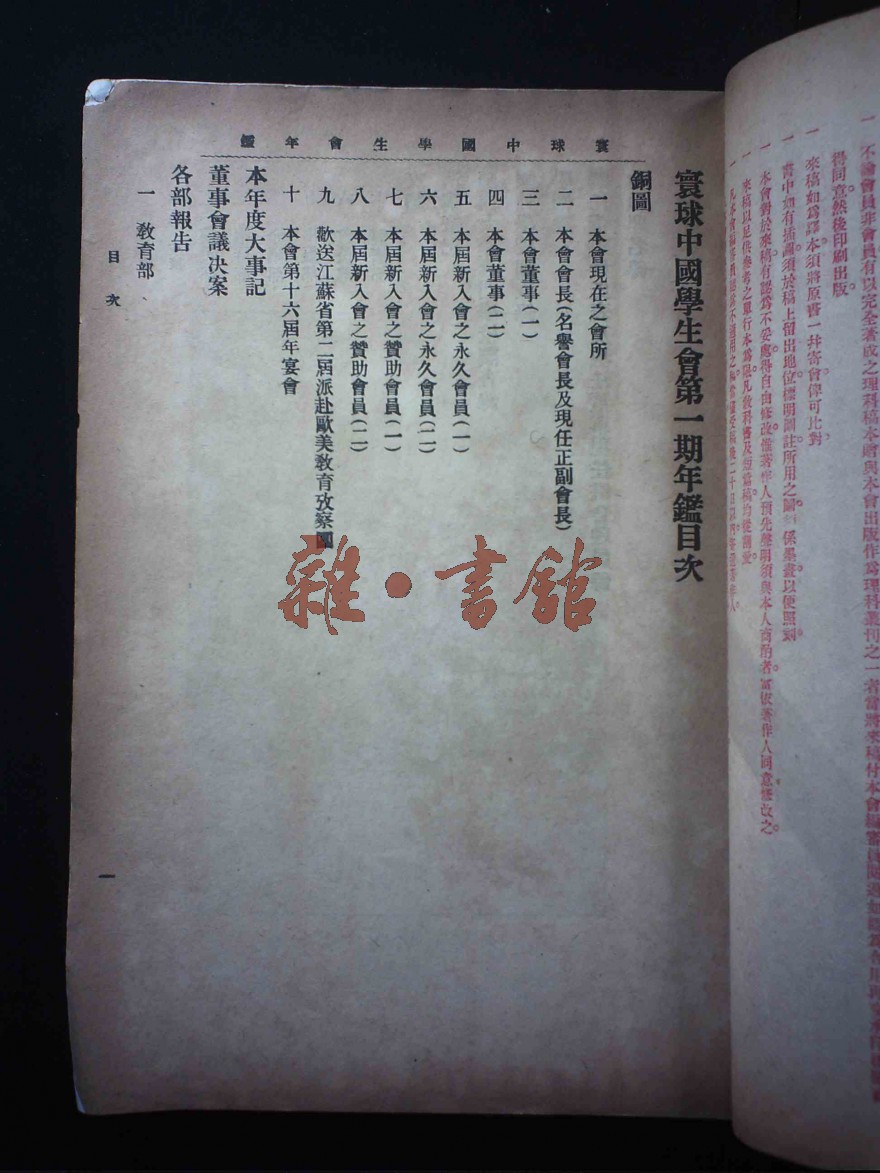 一 不論會員非會員有以完全著成之理科稿本贈與本會出版作為理科叢刊之一者當將來稿付本會編審
得同意然後印刷出版
一 來稿如為譯本須將原書一幷寄會俾可比對
一 書中如有插圖須於稿上留出地位標明圖註所用之圖 係墨畫以便照刻
一 本會對於來稿有認為不妥處得自由修改惟著作人預先聲明須與本人商酌者當俟著作人同意修改之
一 來稿以足供參考之單行本為限凡教科書及短篇稿均從割愛
寰球中國學生會年鑑
寰球中國學生會第一期年鑑目次
銅圖
一 本會現在之會所
二 本會會長(名譽會長及現任正副會長)
三 本會董事(一)
四 本會董事(二)
五 本屆新入會之永久會員(一)
六 本屆新入會之永久會員(二)
七 本屆新入會之贊助會員(一)
八 本屆新入會之贊助會員(二)
九 歡送江蘇省第二屆派赴歐美教育攷察團
十 本會第十六屆年宴會
本年度大事記
董事會議决案
各部報告
一 教育部
目次
一
雜·書館